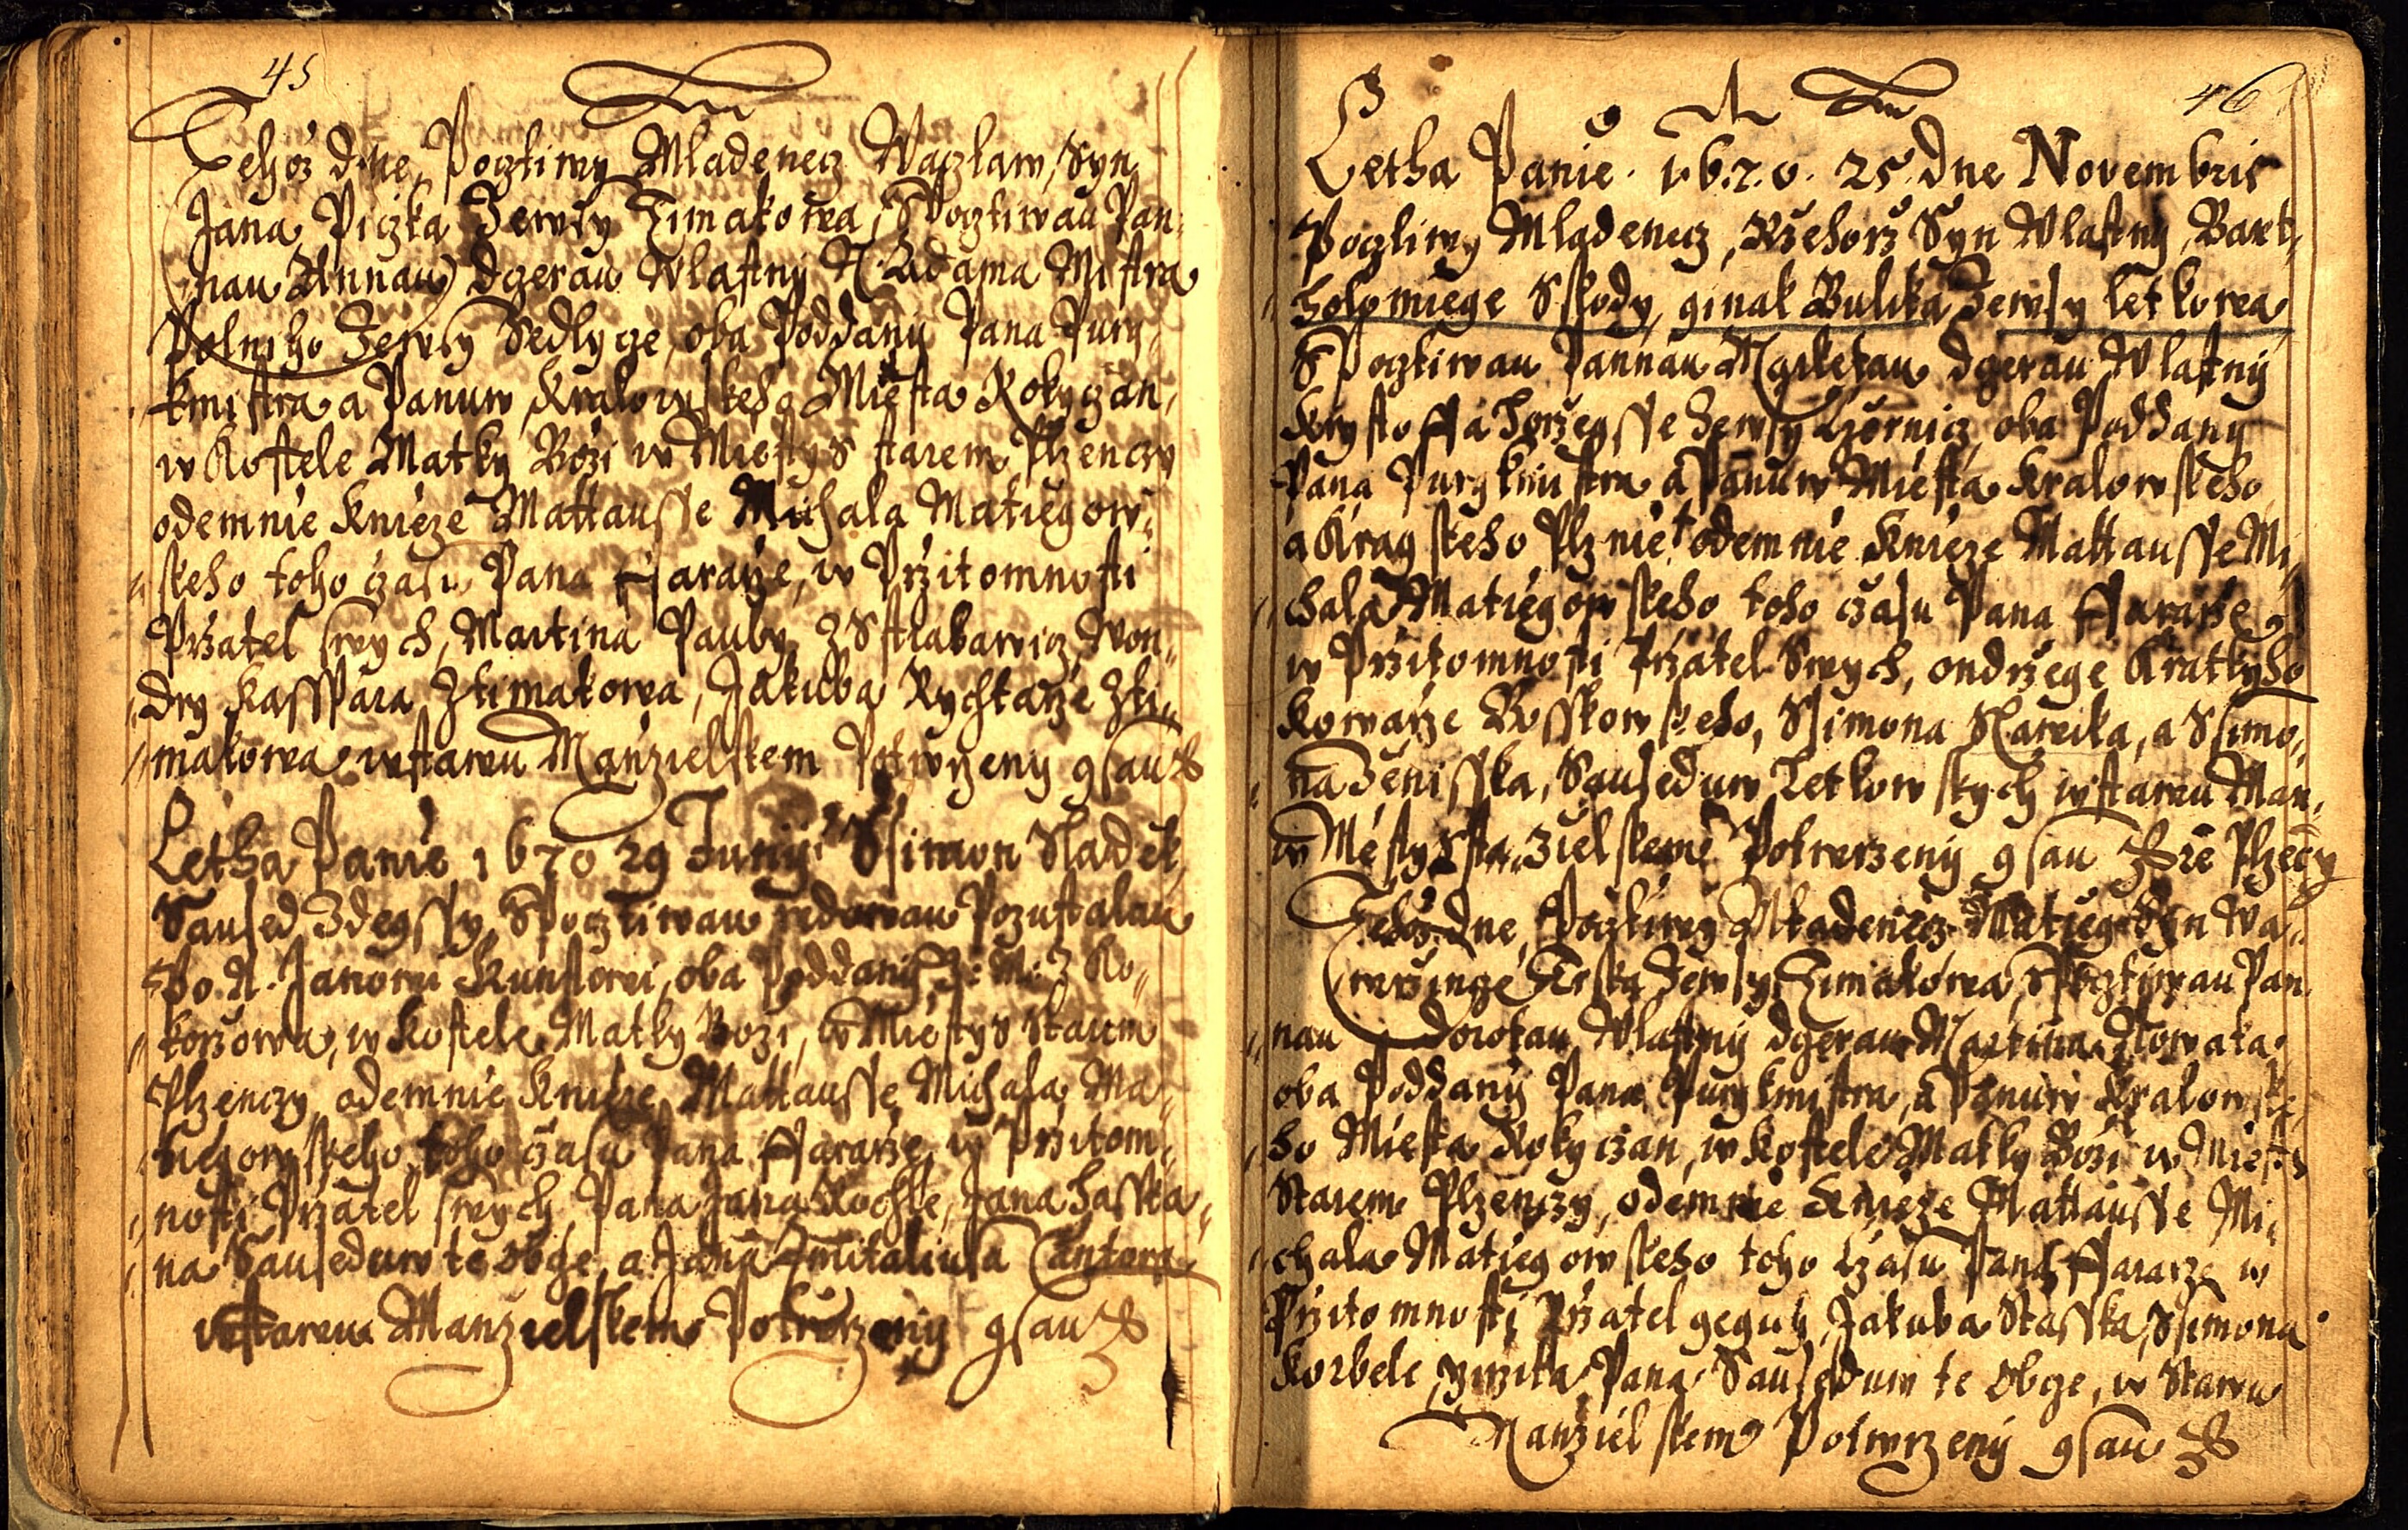 45
Tehoz dne, Pocztiwy Mladenecz Waczlaw, Syn
Jana Piczka Zewsy Timakowa, Spocztiwau Pan¬
nau Annau, dczerau Wlastny N. Adama Mistra
Polniho Zewsy Sedlycze, oba Poddany Pana Purg¬
kmistra a Panuw Kralowskeho Miesta Rokyczan,
w Kostele Matky Bozi w Miestys starem Plzenczy
odemnie Knieze Mattausse Michala Matiegow¬
skeho toho czasu Pana Fararze, w Przitomnosti
Przatel swych, Martina Pauby, Z Sstiahawicz, Won¬
dry Kasspara Ztimakowa, Jakuba Rychtarze Zti¬
makowa wstawu Manzielskem Potwrzeny gsau
Letha Panie 1670 29 Juny Ssimon Sladek,
Saused Zdegssy, Spocztiwau wdowau Pozustalau
Po. N. Janowi Kunstowi, oba Poddany J: M: Z Ko¬
korzowa, w Kostele Matky Bozi, w Miestys Starem
Plzenczy odemnie Knieze Mattausse Michala Ma¬
tiegowskeho toho czasu Pana Fararze, w Przitom¬
nosti Przatel swych, Pana Jana Kochle, Jana Hasska¬
na Sauseduw te obge, a Jana Cantora
wstawu Manzielskem Potwrzeny gsau
46
Letha Panie 1670. 25 dne Novembris
Pocztiwy Mladenecz, Rzehorz Syn Wlastny Bart¬
holomiege Sskody, ginak Bulka Zewsy Letkowa
S Pocztiwau Pannau Marketau dczerau Wlastny
Krystoffa Torzegsse Zewsy Czernicz, oba Poddany
Pana Purgkmistra a Panuw Miesta Kralowskeho
a Kragskeho Plznie + odemnie Knieze Mattausse Mi¬
chala Matiegowskeho toho czasu Pana Fararze
w Przitomnosti Przatel Swych, ondrzege Kratkyho
Kowarze Bosskowskeho, Ssimona Slawika, a Ssimo¬
na Jenisska, Sauseduw Letkowskych wstawu Man¬
w Mesty Sta¬ zielskem Potwrzeny gsau rē Plzeczy
Tehoz dne, Pocztiwy Mladenecz Matieg Syn Wa¬
wrzince Zewsy Timakowa, Spocztiwau Pan
nau Dorotau, Wlastny dczerau Martina Nowaka
oba Poddany Pana Purgkmistra, a Panuw Kralowske¬
ho Miesta Rokyczan, w Kostele Matky Bozi w Miesty
Starem Plzenczy, odemnie Knieze Mattausse Mi¬
chala Matiegowskeho toho czasu Pana Fararze w
Przitomnosti Przatel geguch, Jakuba Stasska, Ssimona
Korbele, Pana Sauseduw te Obge, w Stawu
Manzielskem Potwrzeny gsau